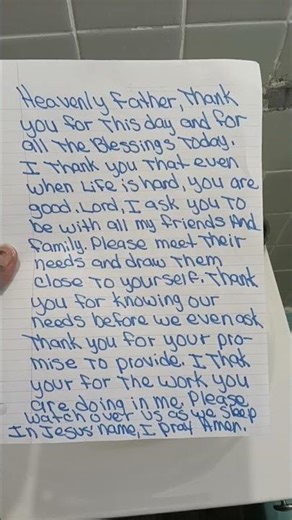 Heavenly Father, Thank
you for This day and for
all The Blessings Today.
I Thank you That even
when Life is hard, you are
good. Lord, I ask you To
be with all my friends And
family. Please meet Their
needs and draw Them
close To yourself. Thank
you for knowing our
needs before we even ask
Thank you for your pro-
mise To provide. I Thak
your for The work you
are doing in me. Please
watch over us as we sleep
In Jesus' name, I pray Amen.